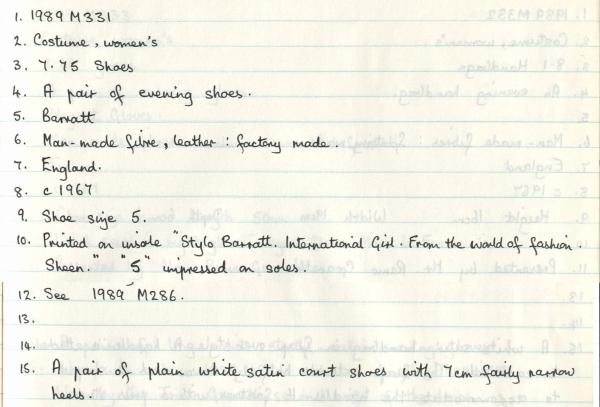 1. 1989 M331
2. Costume, women's
3. 7.75 Shoes
4. A pair of evening shoes.
5. Barratt
6. Man-made fibre, leather : factory made.
7. England.
8. c 1967
9. Shoe size 5.
10. Printed on insole "Stylo Barratt. International Girl. From the world of fashion.
Sheen." "5" impressed on soles.
12. See 1989 M286.
13.
14.
15. A pair of plain white satin court shoes with 7cm fairly narrow
heels.